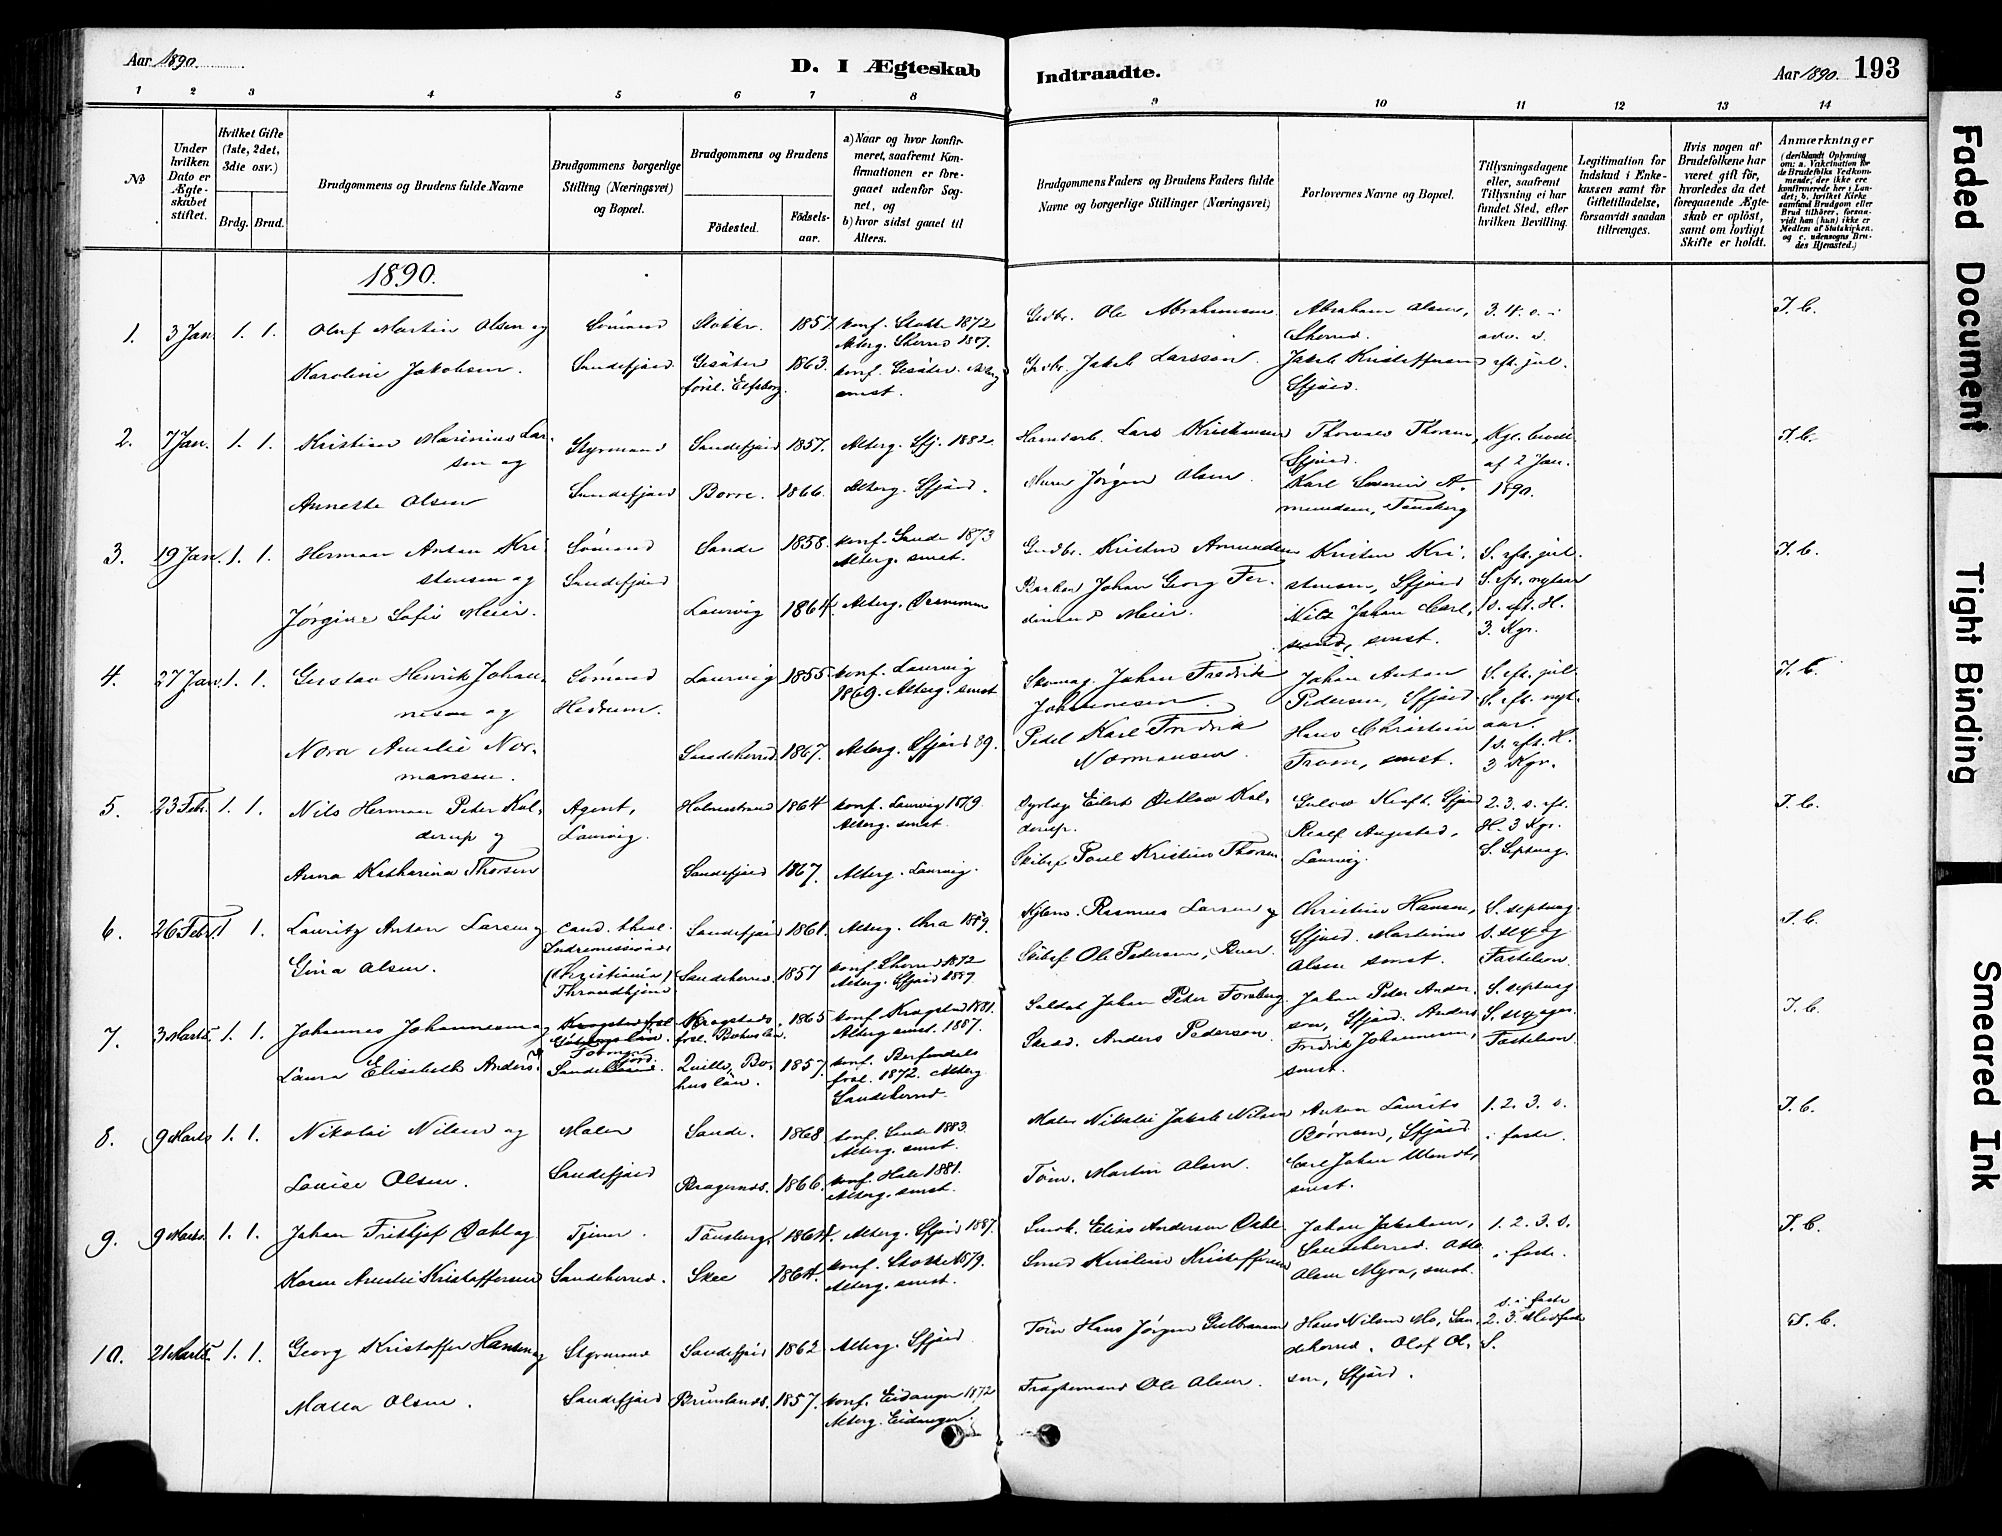 Aar 1890.
D. I Ægteskab
Indtraadte.
Aar 1890. 193
1 2 3 4 5 6 7 8 9 10 11 12 13 14
№
Under hvilken Dato er Ægteskabet stiftet.
Hvilket Gifte (1ste, 2det, 3die osv.)
Brdg. Brud.
Brudgommens og Brudens fulde Navne
Brudgommens borgerlige Stilling (Næringsvei) og Bopæl.
Brudgommens og Brudens
Födested.
Födselsaar.
a) Naar og hvor konfirmeret, saafremt Konfirmationen er foregaaet udenfor Sognet, og
b) hvor sidst gaaet til Alters.
Brudgommens Faders og Brudens Faders fulde Navne og borgerlige Stillinger (Næringsvei)
Forlovernes Navne og Bopæl.
Tillysningsdagene eller, saafremt Tillysning ei har fundet Sted, efter hvilken Bevilling.
Legitimation for Indskud i Enkekassen samt for Giftetilladelse, forsaavidt saadan tiltrænges.
Hvis nogen af Brudefolkene har været gift för, hvorledes da det foregaaende Ægteskab er oplöst, samt om lovligt Skifte er holdt.
Anmærkninger
(deriblandt Oplysning om: a. Vakcination for de Brudefolks Vedkommende, der ikke ere konfirmerede her i Landet; b. hvilket Kirkesamfund Brudgom eller Brud tilhörer, forsaavidt han (hun) ikke er Medlem af Statskirken, og c. udensogns Brudes Hjemsted.)
1890.
1. 3 Jan. 1. 1. Oluf Martin Olsen og Sømand Stokke. 1857. konf. Stokke 1872
Altberg. Sherred 1887.
Gdbr. Ole Abrahamsen. Abraham Olsen, Sherred. 3. 4. s. i adv. s. eft. jul. I. C.
Karoline Jakobsen. Sandefjord. Gesäter førsl. Elfsborg. 1863. konf. Gesäter. Altberg. smst.
Gdbr. Jakob Larsson. Jakob Kristoffersen Sfjord.
2. 7 Jan. 1. 1. Kristian Marinius Larsen og Styrmand Sandefjord 1857. Altberg. Sfj. 1882
Lars Kristiansen Thorvald Thorsen, Sfjord. Kgl. bevill. af 2 Jan. 1890. I. C.
Annette Olsen Sandefjord Borre. 1866. Altberg. Sfjord.
Murer Jørgen Olsen. Karl Severin Amundsen, Tønsberg
3. 19 Jan. 1. 1. Herman Anton Kristensen og Sømand Sandefjord Sande 1858. konf. Sande 1873
Altberg. smst.
Gdbr. Kristen Amundsen Kristen Kristensen, Sfjord S. eft. jul. S. eft. nytaar 1 s. eft. H. 3. Kgr. I. C.
Jørgine Sofie Meier. Laurvig 1864. Altberg. Drammen
Johan Georg Ferdinand Meier. Nils Johan Carlsund, smst.
4. 27 Jan. 1. 1. Gustav Henrik Johannesen og Sømand Hedrum. Laurvig 1855. konf. Laurvig 1869. Altberg. smst
Skomag. Johan Fredrik Johannesen. Johan Anton Pedersen, Sfjord S. eft. jul. S. eft. nytaar. 1 s. eft. H. 3 Kgr. I. C.
Nora Amalie Normansen. Sandeherred. 1867. Altberg. Sfjord 89.
Pedel Karl Fredrik Normansen. Hans Christian From, smst.
5. 23 Feb. 1. 1. Nils Herman Peter Kalderup og Agent, Laurvig. Holmestrand 1864 konf. Laurvig 1879. Altberg. smst.
Eilert Detlow Kalderup. Gulow Kraft. Sfjord 2. 3. s. eft. H. 3 Kgr. S. Septuag. I. C.
Anna Katharina Thorsen Sandefjord 1867. Altberg. Laurvig.
Skibsf. Poul Kristian Thorsen Realf Augestad, Laurvig.
6. 26 Febr. 1 1. Lauritz Anton Larsen og cand. theol. Indremissions (Christiania) Throndhjem Sandefjord 1861. Altberg. Chra 1889.
Rasmus Larsen og Christian Hansen, Sfjord. S. septuag. s. sex og Fastelavn. I. C.
Gina Olsen. Sandeherred. 1857 konf. Sherred 1872 Altberg. Sfjord 1889.
Skibsf. Ole Pedersen, Martinius Olsen smst.
7. 3 Marts. 1. 1. Johannes Johannesen og Krogstad førsl. Bohuslän. 1865 konf. Krogstad 1881. Altberg smst. 1887.
Soldat Johan Peter Forsberg Johan Peter Anderson, Sfjord. S. septuag S. sexages. Fastelavn I. C.
Laura Elisabeth Anders Sandeherred. Quille, Bohuslän. 1857. konf. Berfendals førsl. 1872. Altberg Sandeherred.
Anders Pederson. Anders Fredrik Johannesen, smst.
8. 9 Marts 1. 1. Nikolai Nilsen og Maler Sande. 1868 konf. Sande 1883. Altberg. smst.
Maler Nikolai Jakob Nilsen Anton Laurits Børresen, Sfjord 1. 2. 3. s. i faste. I. C.
Louise Olsen. Sandefjord Bragernes. 1866. konf. Hole 1881. Altberg. smst.
Tøm. Martin Olsen. Carl Johan Wendt, smst.
9. 9 Marts. 1. 1. Johan Fritjof Dahl og Tjener. Tønsberg. 1864. Altberg. Sfjord 1887.
Elias Andersen Dahl Johan Jakobsen, Sandeherred. 1. 2. 3. s. i faste. I. C.
Karen Amalie Kristoffersen Sandeherred. Skee 1864. konf. Stokke 1879. Altberg. smst.
Smed Kristian Kristoffersen Olsen Myra, smst.
10. 21 Marts. 1. 1. Georg Kristoffer Hansen og Styrmand Sandefjord 1862 Altberg. Sfjord.
Tøm Hans Jørgen Gulbransen Hans Nilsen Mo, Sandeherred. s. i faste 2. 3. Midfaste S. I. C.
Malla Olsen. Sandefjord Brunlands. 1857. konf. Eidanger 1872 Altberg. Eidanger.
Fragtemand Ole Olsen. Olaf Olsen, Sfjord.
Faded Document
Tight Binding
Smeared Ink